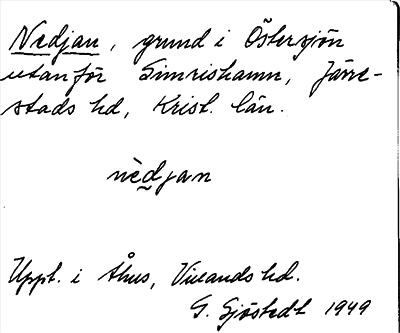 Nedjan, grund i Östersjön
utanför Simrishamn, Järre-
stads hd, Krist. län.
nèdjan
Uppt. i Åhus, Villands hd.
G. Sjöstedt 1949